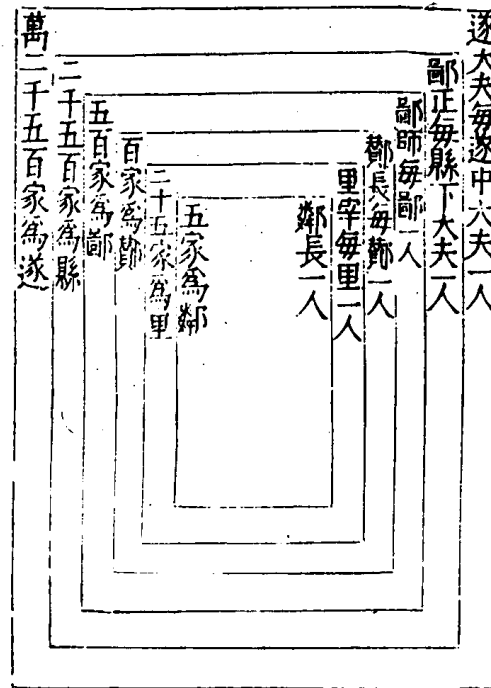 遂大夫每遂中大夫一人
鄙正每縣下大夫一人
鄙師每鄙一人
酇長每酇一人
里宰每里一人
鄰長一人
五家爲鄰
二十五家爲里
百家爲酇
五百家爲鄙
二千五百家爲縣
萬二千五百家爲遂